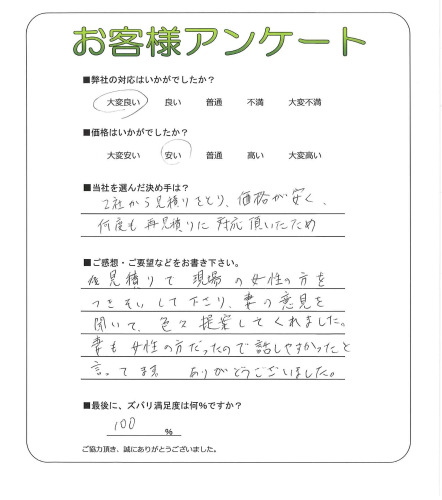 お客様アンケート
■弊社の対応はいかがでしたか？
大変良い 良い 普通 不満 大変不満
■価格はいかがでしたか？
大変安い 安い 普通 高い 大変高い
■当社を選んだ決め手は？
2社から見積りをとり、価格が安く、
何度も再見積りに対応頂いたため
■ご感想・ご要望などをお書き下さい。
見積りて 現場の女性の方を
つきそいして下さり、妻の意見を
聞いて、色々提案してくれました。
妻も女性の方だったので話しやすかったと
言ってます ありがとうございました。
■最後に、ズバリ満足度は何%ですか？
100 %
ご協力頂き、誠にありがとうございました。